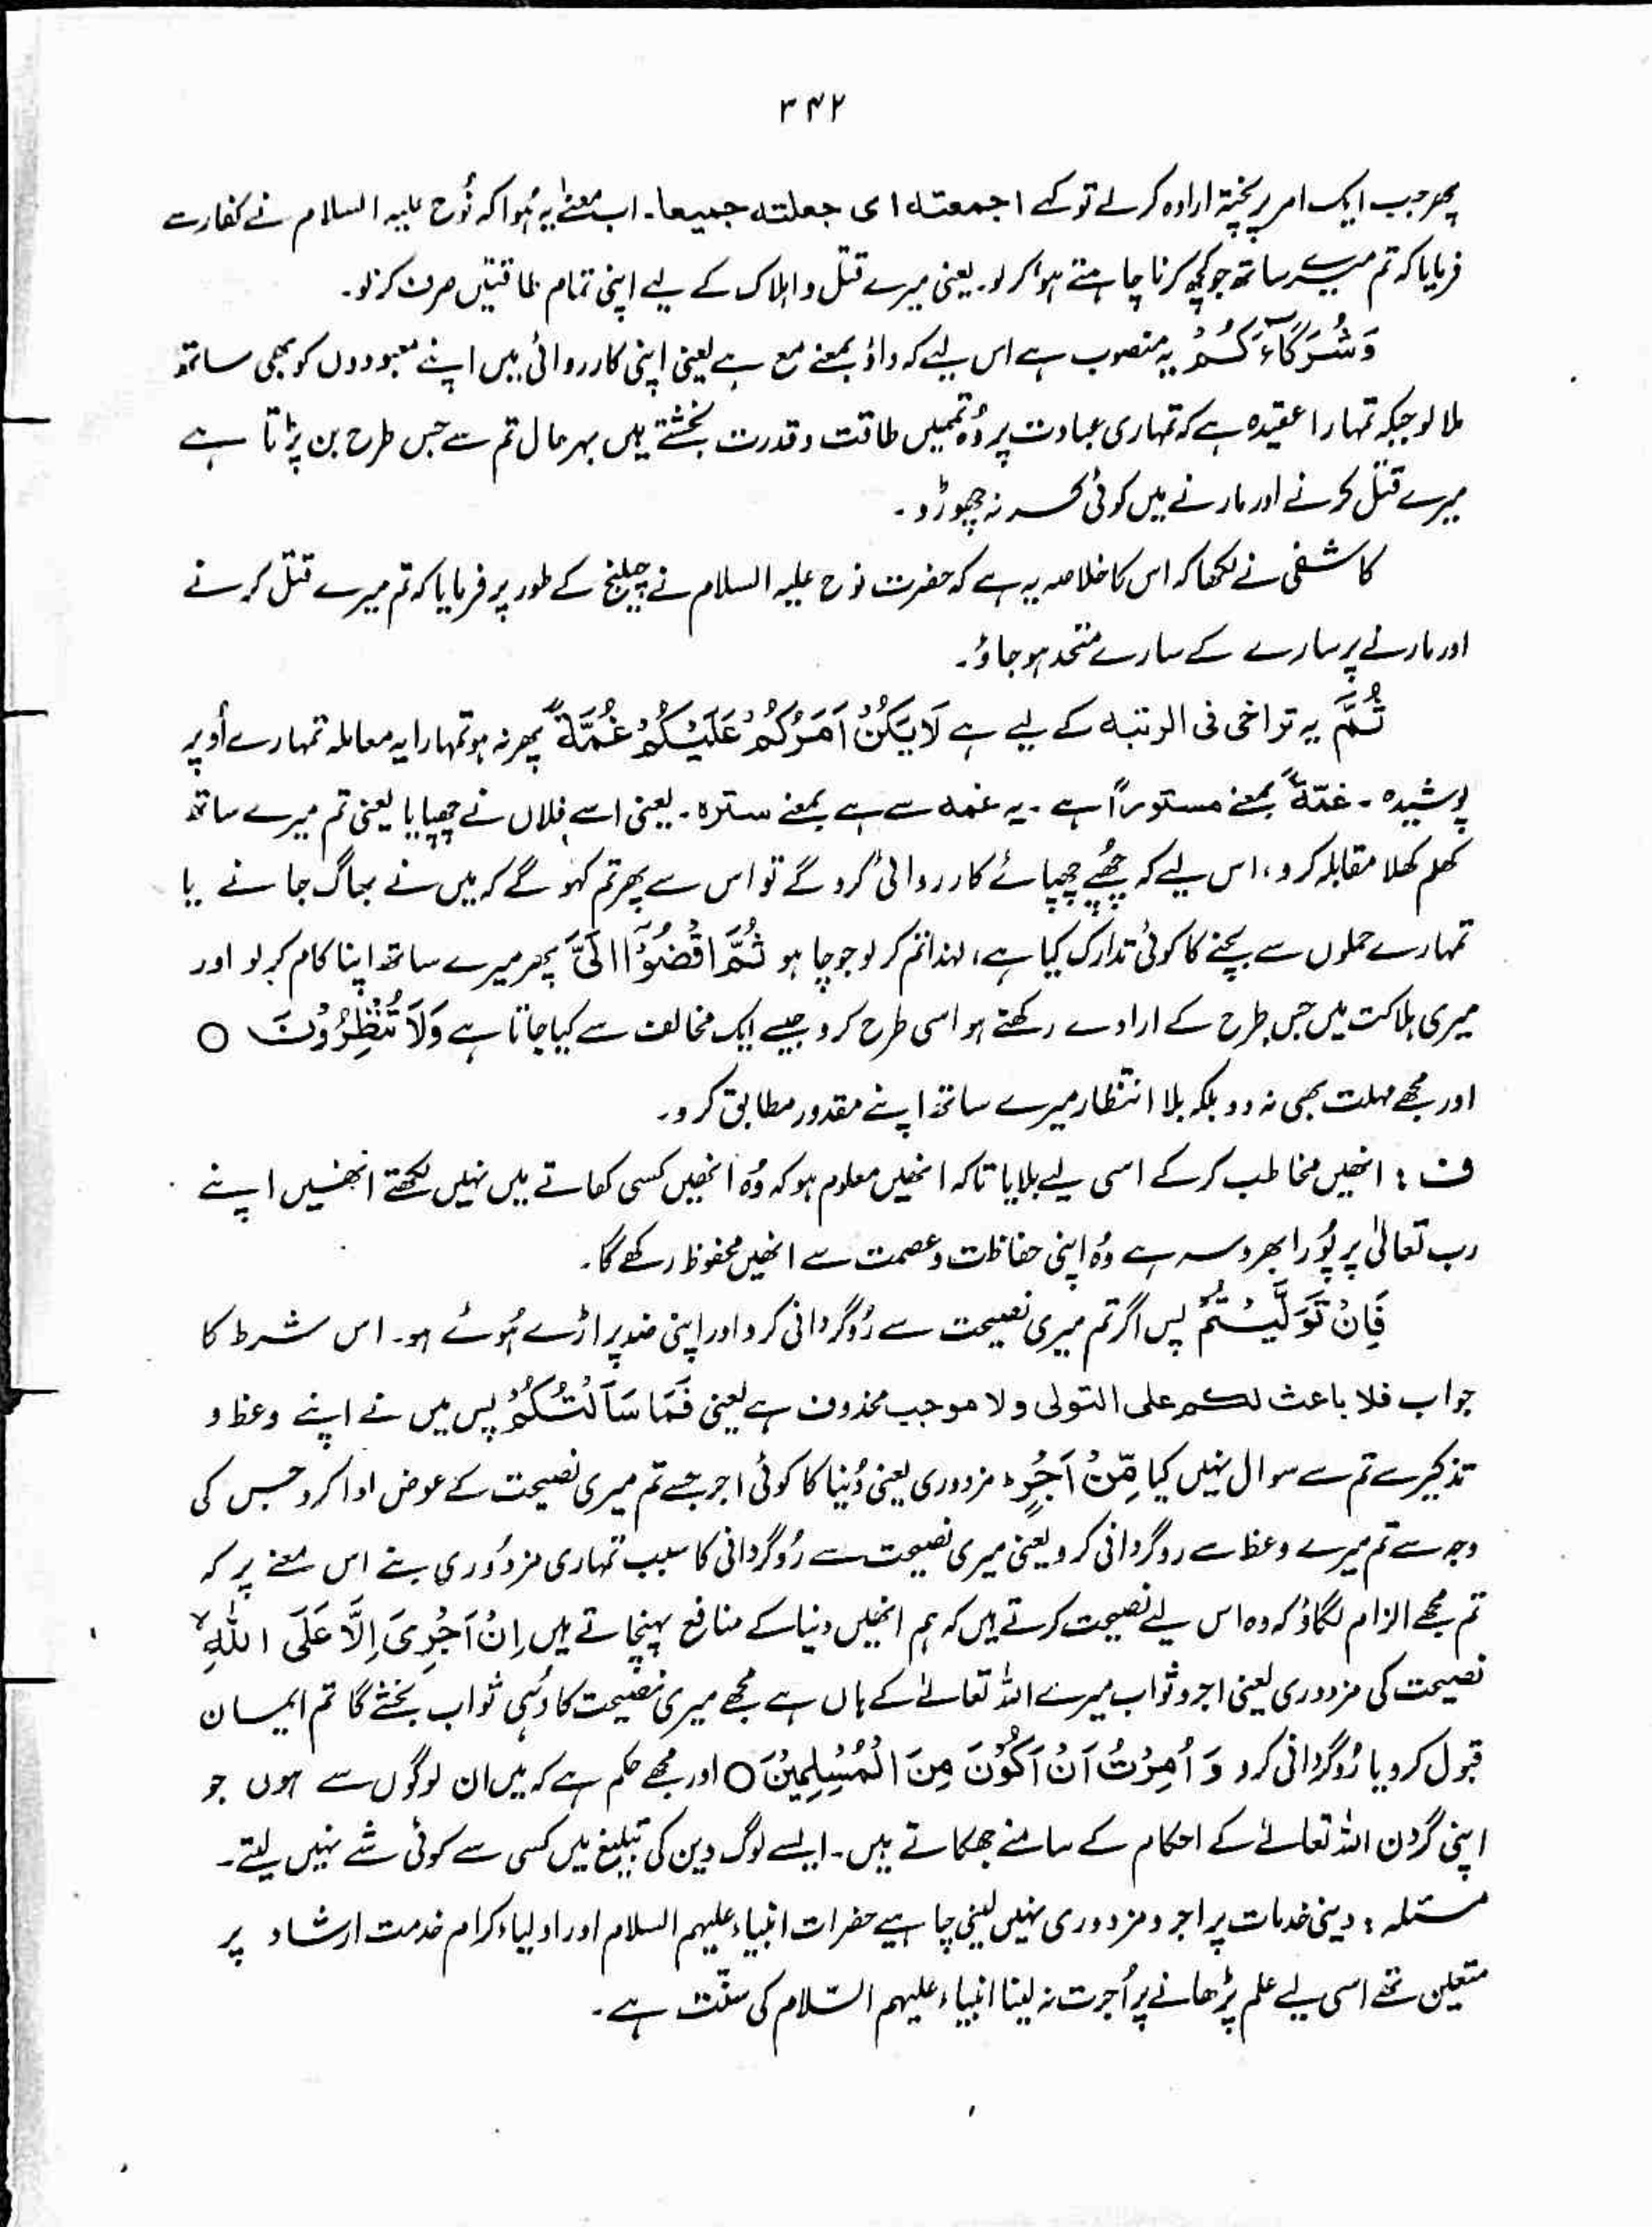 ۳۴۲
پھر جب ایک امر پر پختہ ارادہ کرلے تو کہے اجمعتہ ای جعلتہ جمیعا۔ اب معنےٰ یہ ہُوا کہ نُوح علیہ السلام نے کفار سے
فرمایا کہ تم میرے ساتھ جو کچھ کرنا چاہتے ہو کر لو۔ یعنی میرے قتل و اہلاک کے لیے اپنی تمام طاقتیں صرف کر لو۔
وَشُرَكَآءَكُمْ یہ منصوب ہے اس لیے کہ واؤ بمعنے مع ہے یعنی اپنی کارروائی میں اپنے معبودوں کو بھی ساتھ
ملا لو جبکہ تمہارا عقیدہ ہے کہ تمہاری عبادت پر وُہ تمہیں طاقت و قدرت بخشتے ہیں بہرحال تم سے جس طرح بن پڑتا ہے
میرے قتل کرنے اور مارنے میں کوئی کسر نہ چھوڑو۔
کاشفی نے لکھا کہ اس کا خلاصہ یہ ہے کہ حضرت نوح علیہ السلام نے چیلنج کے طور پر فرمایا کہ تم میرے قتل کرنے
اور مارنے پر سارے کے سارے متحد ہو جاؤ۔
ثُمَّ یہ تراخی فی الرتبہ کے لیے ہے لَا يَكُنْ اَمْرُكُمْ عَلَيْكُمْ غُمَّةً پھر نہ ہو تمہارا یہ معاملہ تمہارے اُوپر
پوشیدہ۔ غمّۃً بمعنے مستوراً ہے۔ یہ غمہ سے ہے بمعنے سترہ۔ یعنی اسے فلاں نے چھپایا یعنی تم میرے ساتھ
کھلم کھلا مقابلہ کرو، اس لیے کہ چھُپے چھپائے کارروائی کرو گے تو اس سے پھر تم کہو گے کہ میں نے بھاگ جانے یا
تمہارے حملوں سے بچنے کا کوئی تدارک کیا ہے، لہذا تم کر لو جو چاہو ثُمَّ اقْضُوْٓا اِلَيَّ پھر میرے ساتھ اپنا کام کر لو اور
میری ہلاکت میں جس طرح کے ارادے رکھتے ہو اسی طرح کرو جیسے ایک مخالف سے کیا جاتا ہے وَلَا تُنْظِرُوْنَ ○
اور مجھے مہلت بھی نہ دو بلکہ بلا انتظار میرے ساتھ اپنے مقدور مطابق کرو۔
ف : انھیں مخاطب کر کے اسی لیے بلایا تاکہ انھیں معلوم ہو کہ وُہ انھیں کسی کھاتے میں نہیں لکھتے انھیں اپنے
رب تعالیٰ پر پُورا بھروسہ ہے وُہ اپنی حفاظت و عصمت سے انھیں محفوظ رکھے گا۔
فَاِنْ تَوَلَّيْتُمْ پس اگر تم میری نصیحت سے رُوگردانی کرو اور اپنی ضد پر اڑے ہُوئے ہو۔ اس شرط کا
جواب فلا باعث لکم علی التولی ولا موجب محذوف ہے یعنی فَمَا سَاَلْتُكُمْ پس میں نے اپنے وعظ و
تذکیر سے تم سے سوال نہیں کیا مِّنْ اَجْرٍ ؕ مزدوری یعنی دُنیا کا کوئی اجر جسے تم میری نصیحت کے عوض ادا کرو جس کی
وجہ سے تم میرے وعظ سے روگردانی کرو یعنی میری نصیحت سے رُوگردانی کا سبب تمہاری مزدُوری بنے اس معنے پر کہ
تم مجھے الزام لگاؤ کہ وہ اس لیے نصیحت کرتے ہیں کہ ہم انھیں دنیا کے منافع پہنچاتے ہیں اِنْ اَجْرِىَ اِلَّا عَلَى اللّٰهِ ۙ
نصیحت کی مزدوری یعنی اجر و ثواب میرے اللہ تعالےٰ کے ہاں ہے مجھے میری نصیحت کا وُہی ثواب بخشے گا تم ایمان
قبول کرو یا رُوگردانی کرو وَ اُمِرْتُ اَنْ اَكُوْنَ مِنَ الْمُسْلِمِيْنَ ○ اور مجھے حکم ہے کہ میں ان لوگوں سے ہوں جو
اپنی گردن اللہ تعالےٰ کے احکام کے سامنے جھکاتے ہیں۔ ایسے لوگ دین کی تبلیغ میں کسی سے کوئی شے نہیں لیتے۔
مسئلہ : دینی خدمات پر اجر و مزدوری نہیں لینی چاہیے حضرات انبیاء علیہم السلام اور اولیاء کرام خدمت ارشاد پر
متعین تھے اسی لیے علم پڑھانے پر اُجرت نہ لینا انبیاء علیہم السّلام کی سنّت ہے۔